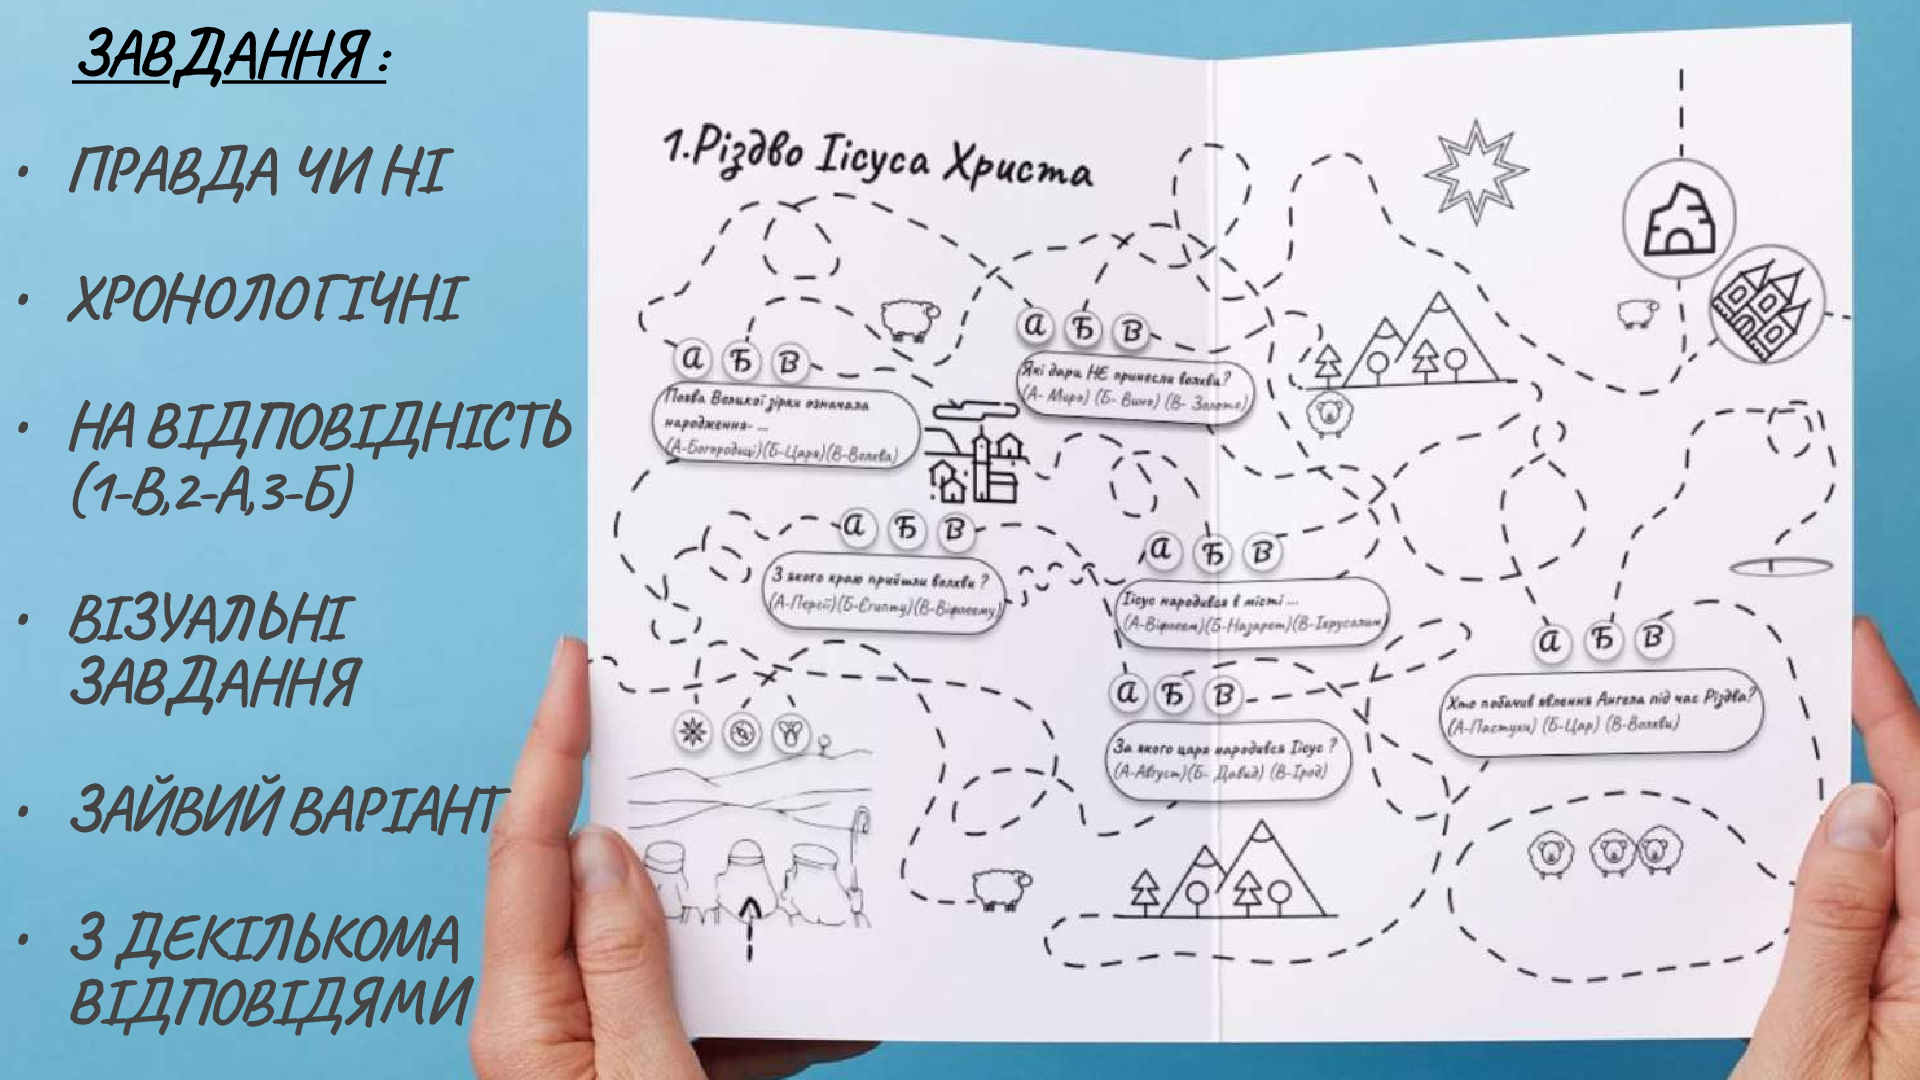 ЗАВДАННЯ:
• ПРАВДА ЧИ НІ
• ХРОНОЛОГІЧНІ
• НА ВІДПОВІДНІСТЬ
(1-В,2-А,3-Б)
• ВІЗУАЛЬНІ
ЗАВДАННЯ
• ЗАЙВИЙ ВАРІАНТ
• З ДЕКІЛЬКОМА
ВІДПОВІДЯМИ
1.Різдво Іісуса Христа
А Б В
Поява Великої зірки означала
народження- ...
(А-Богородиці)(Б-Царя)(В-Волхва)
А Б В
Які дари НЕ принесли волхви?
(А- Миро) (Б- Вино) (В- Золото)
А Б В
З якого краю прийшли волхви ?
(А-Персії)(Б-Єгипту)(В-Віфлеєму)
А Б В
Іісус народився в місті ...
(А-Віфлеєм)(Б-Назарет)(В-Ієрусалим)
А Б В
За якого царя народився Іісус ?
(А-Август)(Б- Давид) (В-Ірод)
А Б В
Хто побачив явлення Ангела під час Різдва?
(А-Пастухи) (Б-Цар) (В-Волхви)